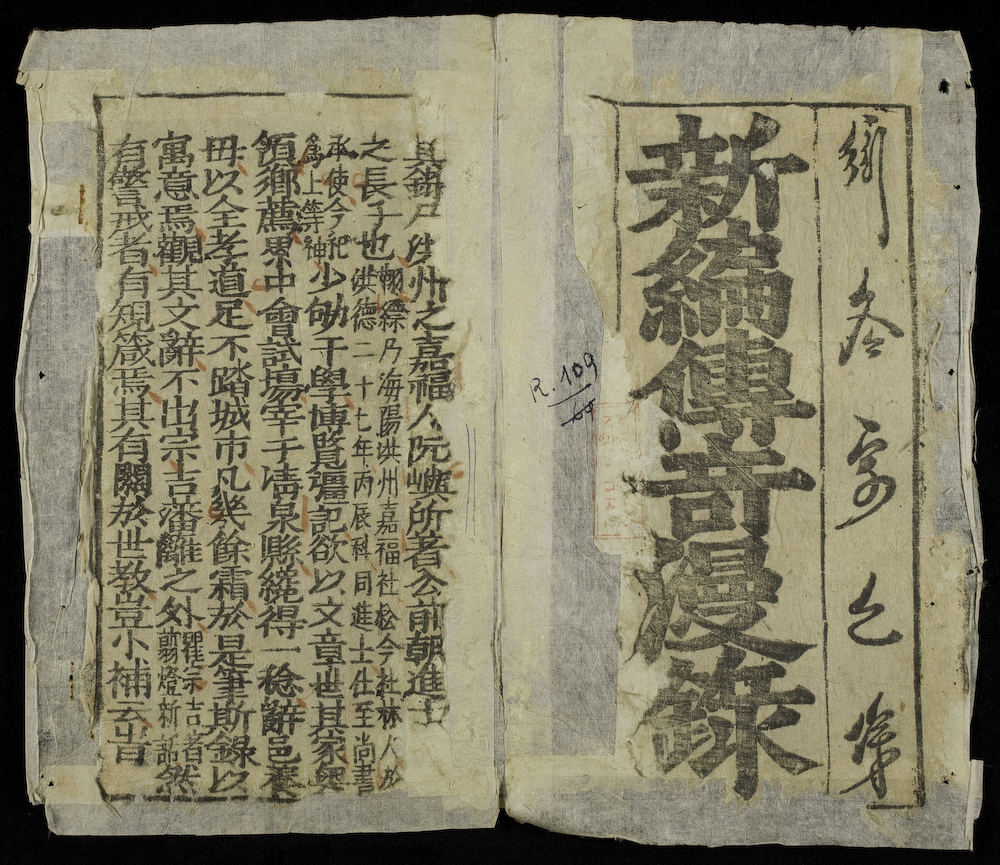 新編傳竒漫錄
R.109
64
其錄乃洪州之嘉福人阮嶼所著公前朝進士
之長子也
翔縹乃海陽洪州嘉福社松今社林人於
洪德二十七年丙辰科同進士仕至尚書
承使今祀
爲上等神
少劬于學博覽彊記欲以文章世其家粵
領鄉薦累中會試塲宰于清泉縣纔得一稔辭邑養
毋以全孝道足不踏城市凡幾餘霜於是筆斯錄以
寓意焉觀其文辭不出宗吉藩籬之外
瞿宗吉者
剪燈新話
然
有警戒者有規箴焉其有關於世教豈小補云旹